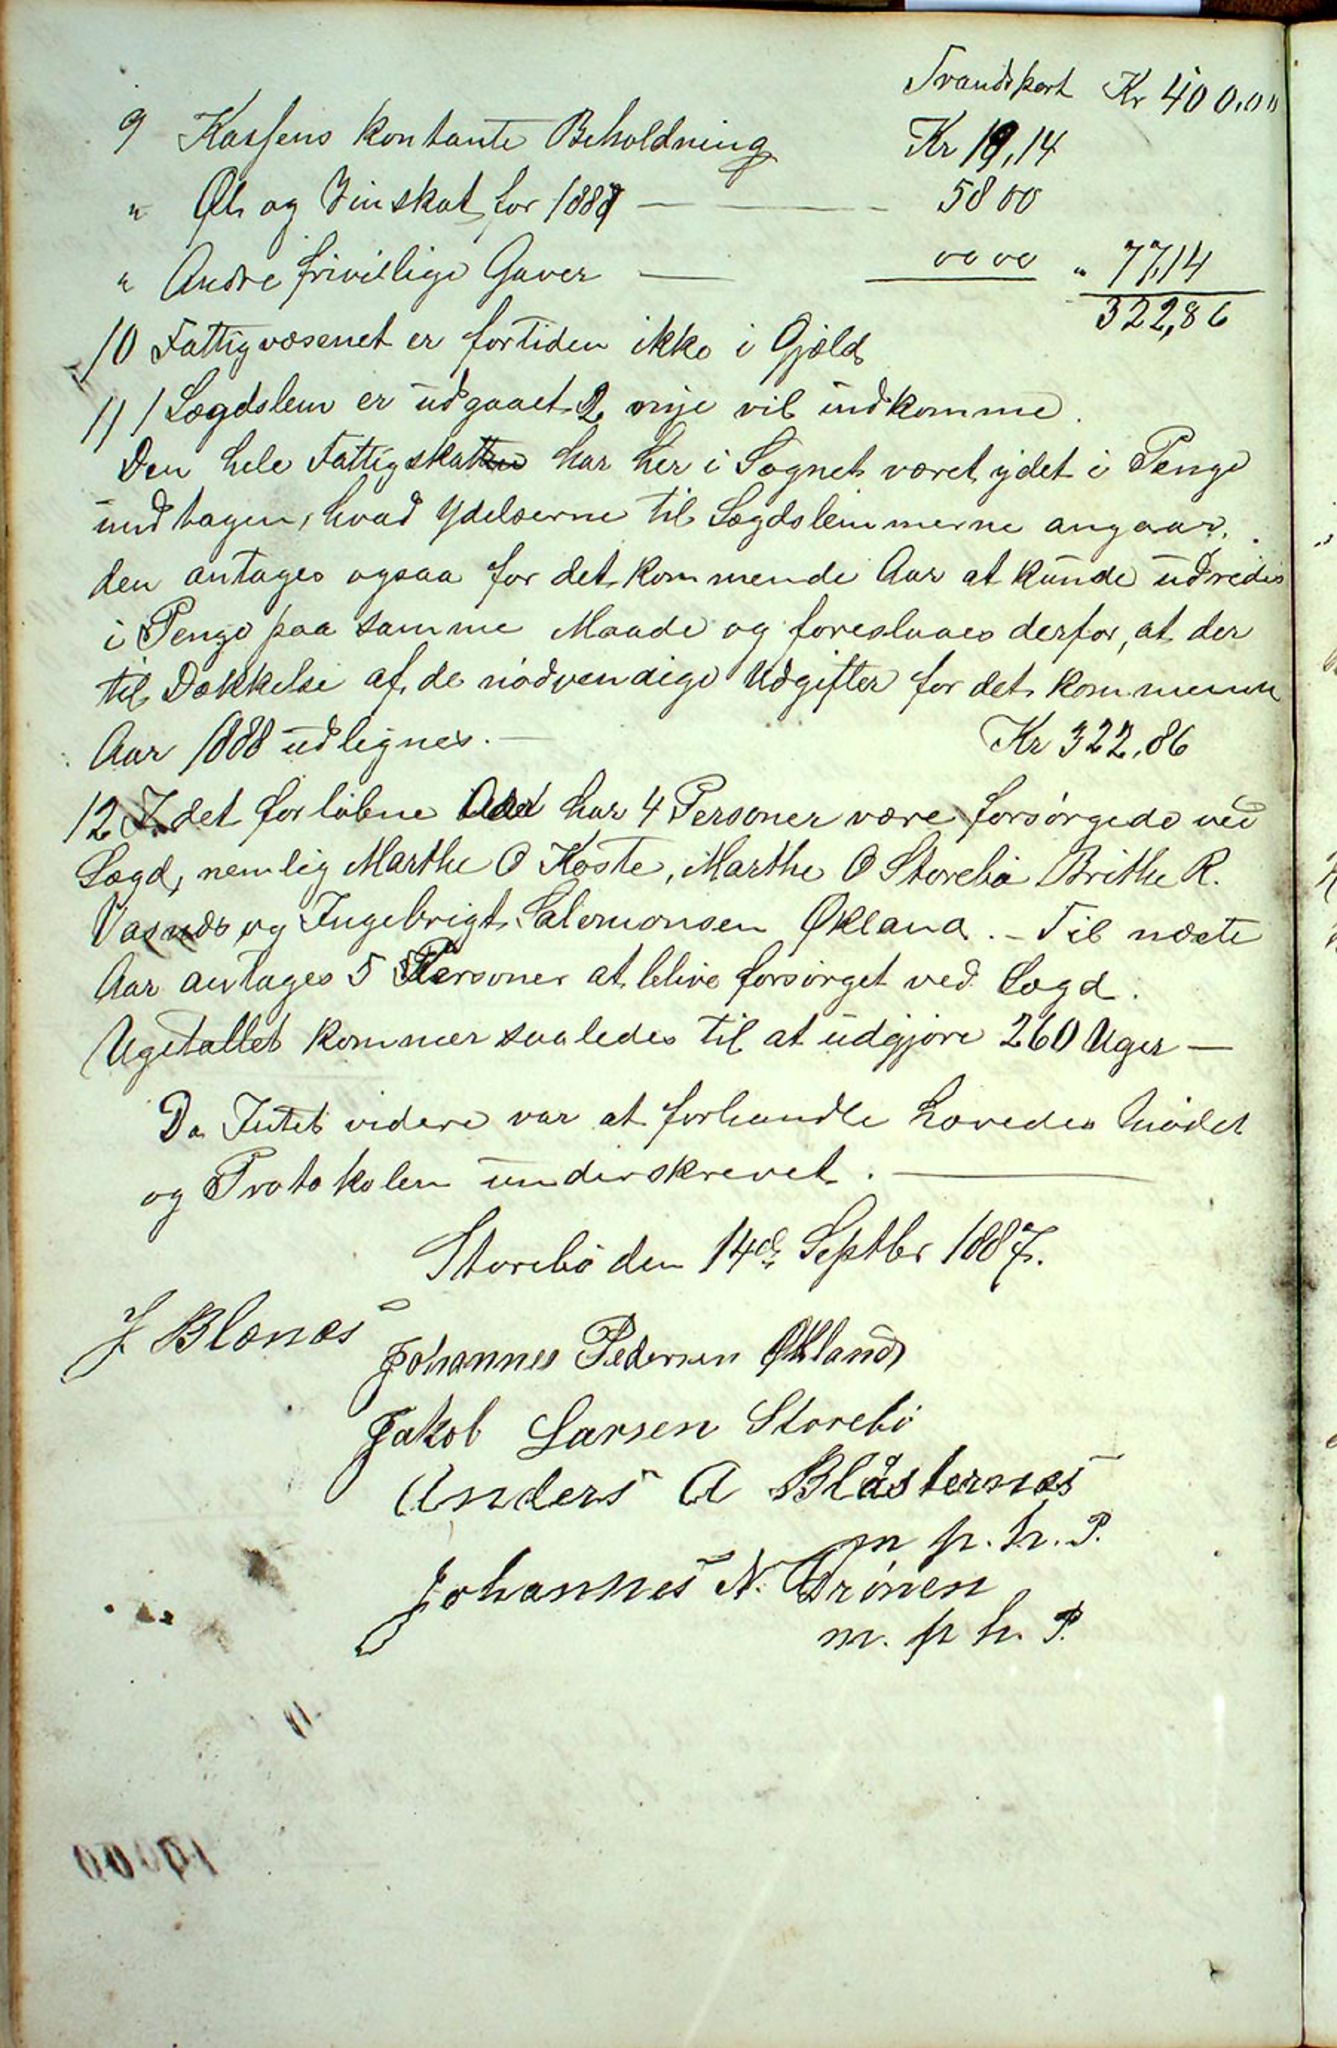 Transport Kr 400,00
9 Kassens kontante Beholdning Kr 19,14
" Øl og Vinskat for 1887 — 58 00
" Andre frivillige Gaver — 00 00 " 77,14
322,86
10 Fattigvæsenet er fortiden ikke i Gjæld
11/ 1 Lægdslem er udgaaet 2 nye vil indkomme.
Den hele Fattigskatten har her i Sognet været ydet i Penge
undtagen, hvad Ydelserne til Lægdslemmerne angaar,
den antages ogsaa for det kommende Aar at kunde udredes
i Penge paa samme Maade og foreslaaes derfor, at der
til Dækkelse af de nødvendige Udgifter for det kommende
Aar 1888 udlignes. — Kr 322,86
12 I det forløbne Aar har 4 Personer være forsørgede ved
Lægd, nemlig Marthe O Koste, Marthe O Storebø Brithe R.
Vasnæs og Ingebrigt Salomonsen Økland. – Til næste
Aar antages 5 Personer at blive forsørget ved Lægd.
Ugetallet kommer saaledes til at udgjøre 260 Uger —
Da Intet videre var at forhandle hævedes Mødet
og Protokolen underskrevet. —
Storebø den 14de Septbr 1887.
J Blænæs
Johannes Pedersen Økland
Jakob Larsen Storebø
Anders A Blåsternæs
m p. h. P.
Johannes N. Grønen
m. p h. P.